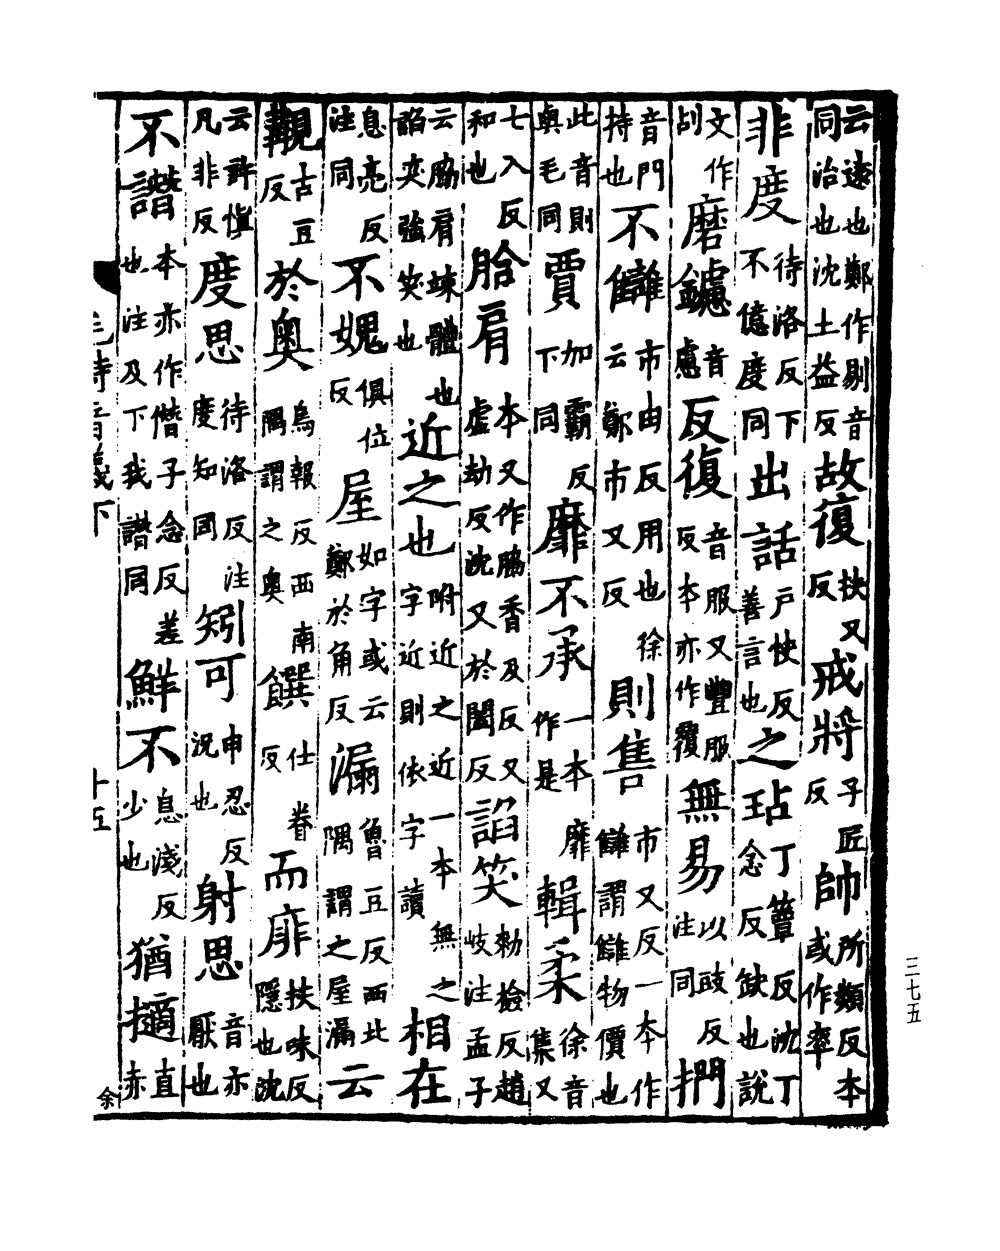 云遠也鄭作剔音同治也沈土益反故復扶又反戒將子匠反帥所類反本或作率
非度待洛反下不億度同出話戶快反善言也之玷丁簟反沈丁念反缺也說
文作刮磨鑢音慮反復音服又豐服反本亦作覆無易以豉反注同捫
音門持也不讎市由反用也徐云鄭市又反則售市又反一本作讎謂讎物價也
此音則與毛同賈加霸反下同靡不承一本靡作是輯柔徐音集又
七入反和也䏩肩本又作脇香及反又虛劫反沈又於闔反諂笑勑檢反趙岐注孟子
云脇肩竦體也諂笑強笑也近之也附近之近一本無之字近則依字讀相在
息亮反注同不媿俱位反屋如字或云鄭於角反漏魯豆反西北隅謂之屋漏云
覯古豆反於奧烏報反西南隅謂之奧饌仕眷反而厞扶味反隱也沈
云許慎凡非反度思待洛反注度知同矧可申忍反況也射思音亦厭也
不譖本亦作僭子念反差也注及下我譖同鮮不息淺反少也猶擿直赤
毛詩音義下
十五
余
三七五